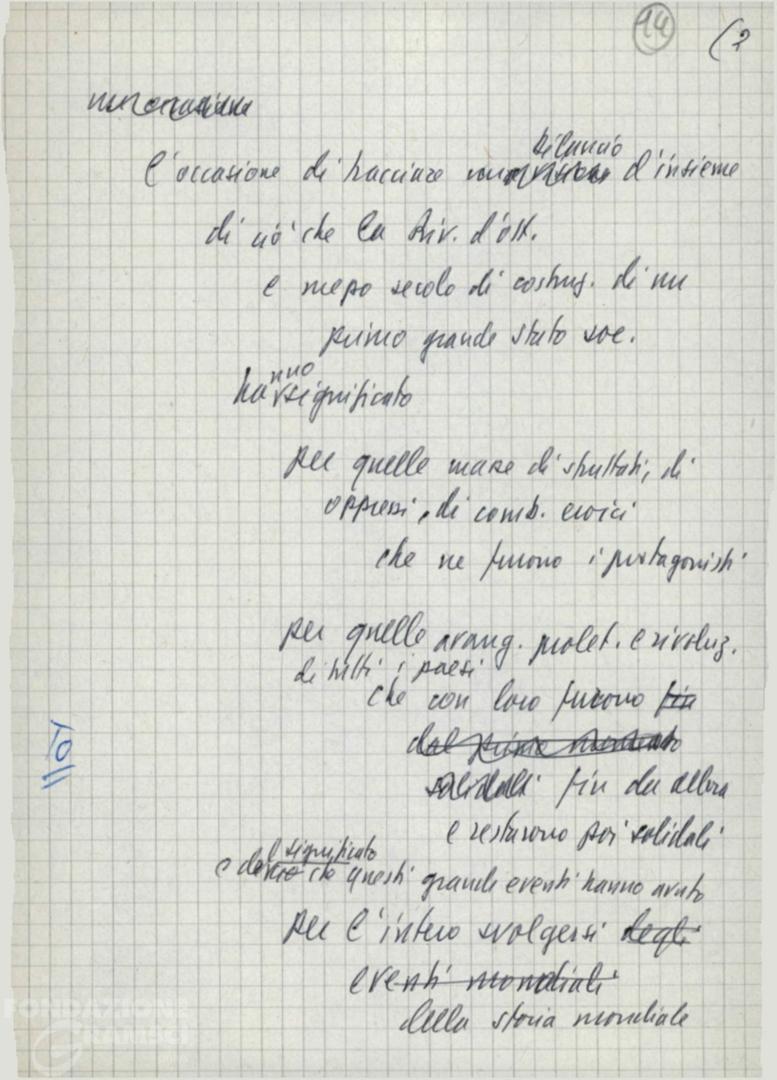 14
(2
un'occasione
bilancio
l'occasione di tracciare una visione d'insieme
di ciò che la Riv. d'ott.
e mezzo secolo di costruz. di un
primo grande stato soc.
hanno significato
per quelle masse di sfruttati, di
oppressi, di comb. eroici
che ne furono i protagonisti
per quelle avang. prolet. e rivoluz.
di tutti i paesi
che con loro furono fin
dal primo momento
solidali fin da allora
e restarono poi solidali
significato
e del che questi grandi eventi hanno avuto
per l'intero svolgersi degli
eventi mondiali
della storia mondiale
FONDAZIONE
GRAMSCI